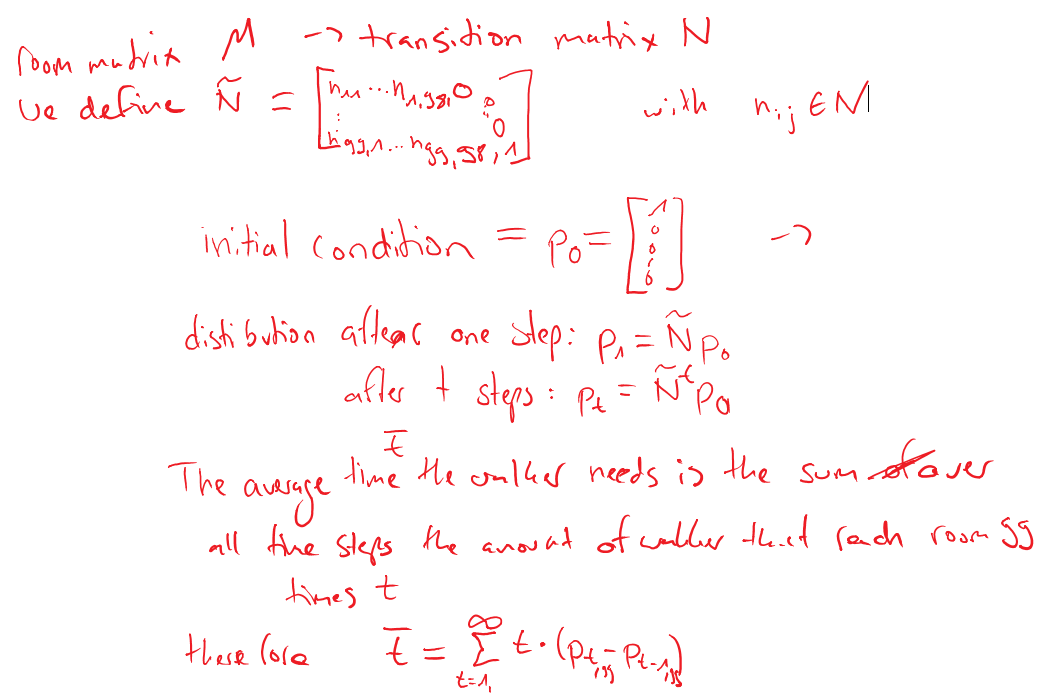 room matrix M -> transition matrix N
we define Ñ = [n₁₁ ... n₁,₉₈, 0
⋮ 0
n₉₉,₁ ... n₉₉,₉₈, 1] with nᵢⱼ ∈ N
initial condition = p₀ = [1 0 0 ⋮ 0] ->
distribution after one step: p₁ = Ñ p₀
after t steps: pₜ = Ñᵗ p₀
The average time t̄ the walker needs is the sum over
all time steps the amount of walker that reach room 99
times t
therefore t̄ = Σ_{t=1}^{∞} t · (p_{t,99} - p_{t-1,99})